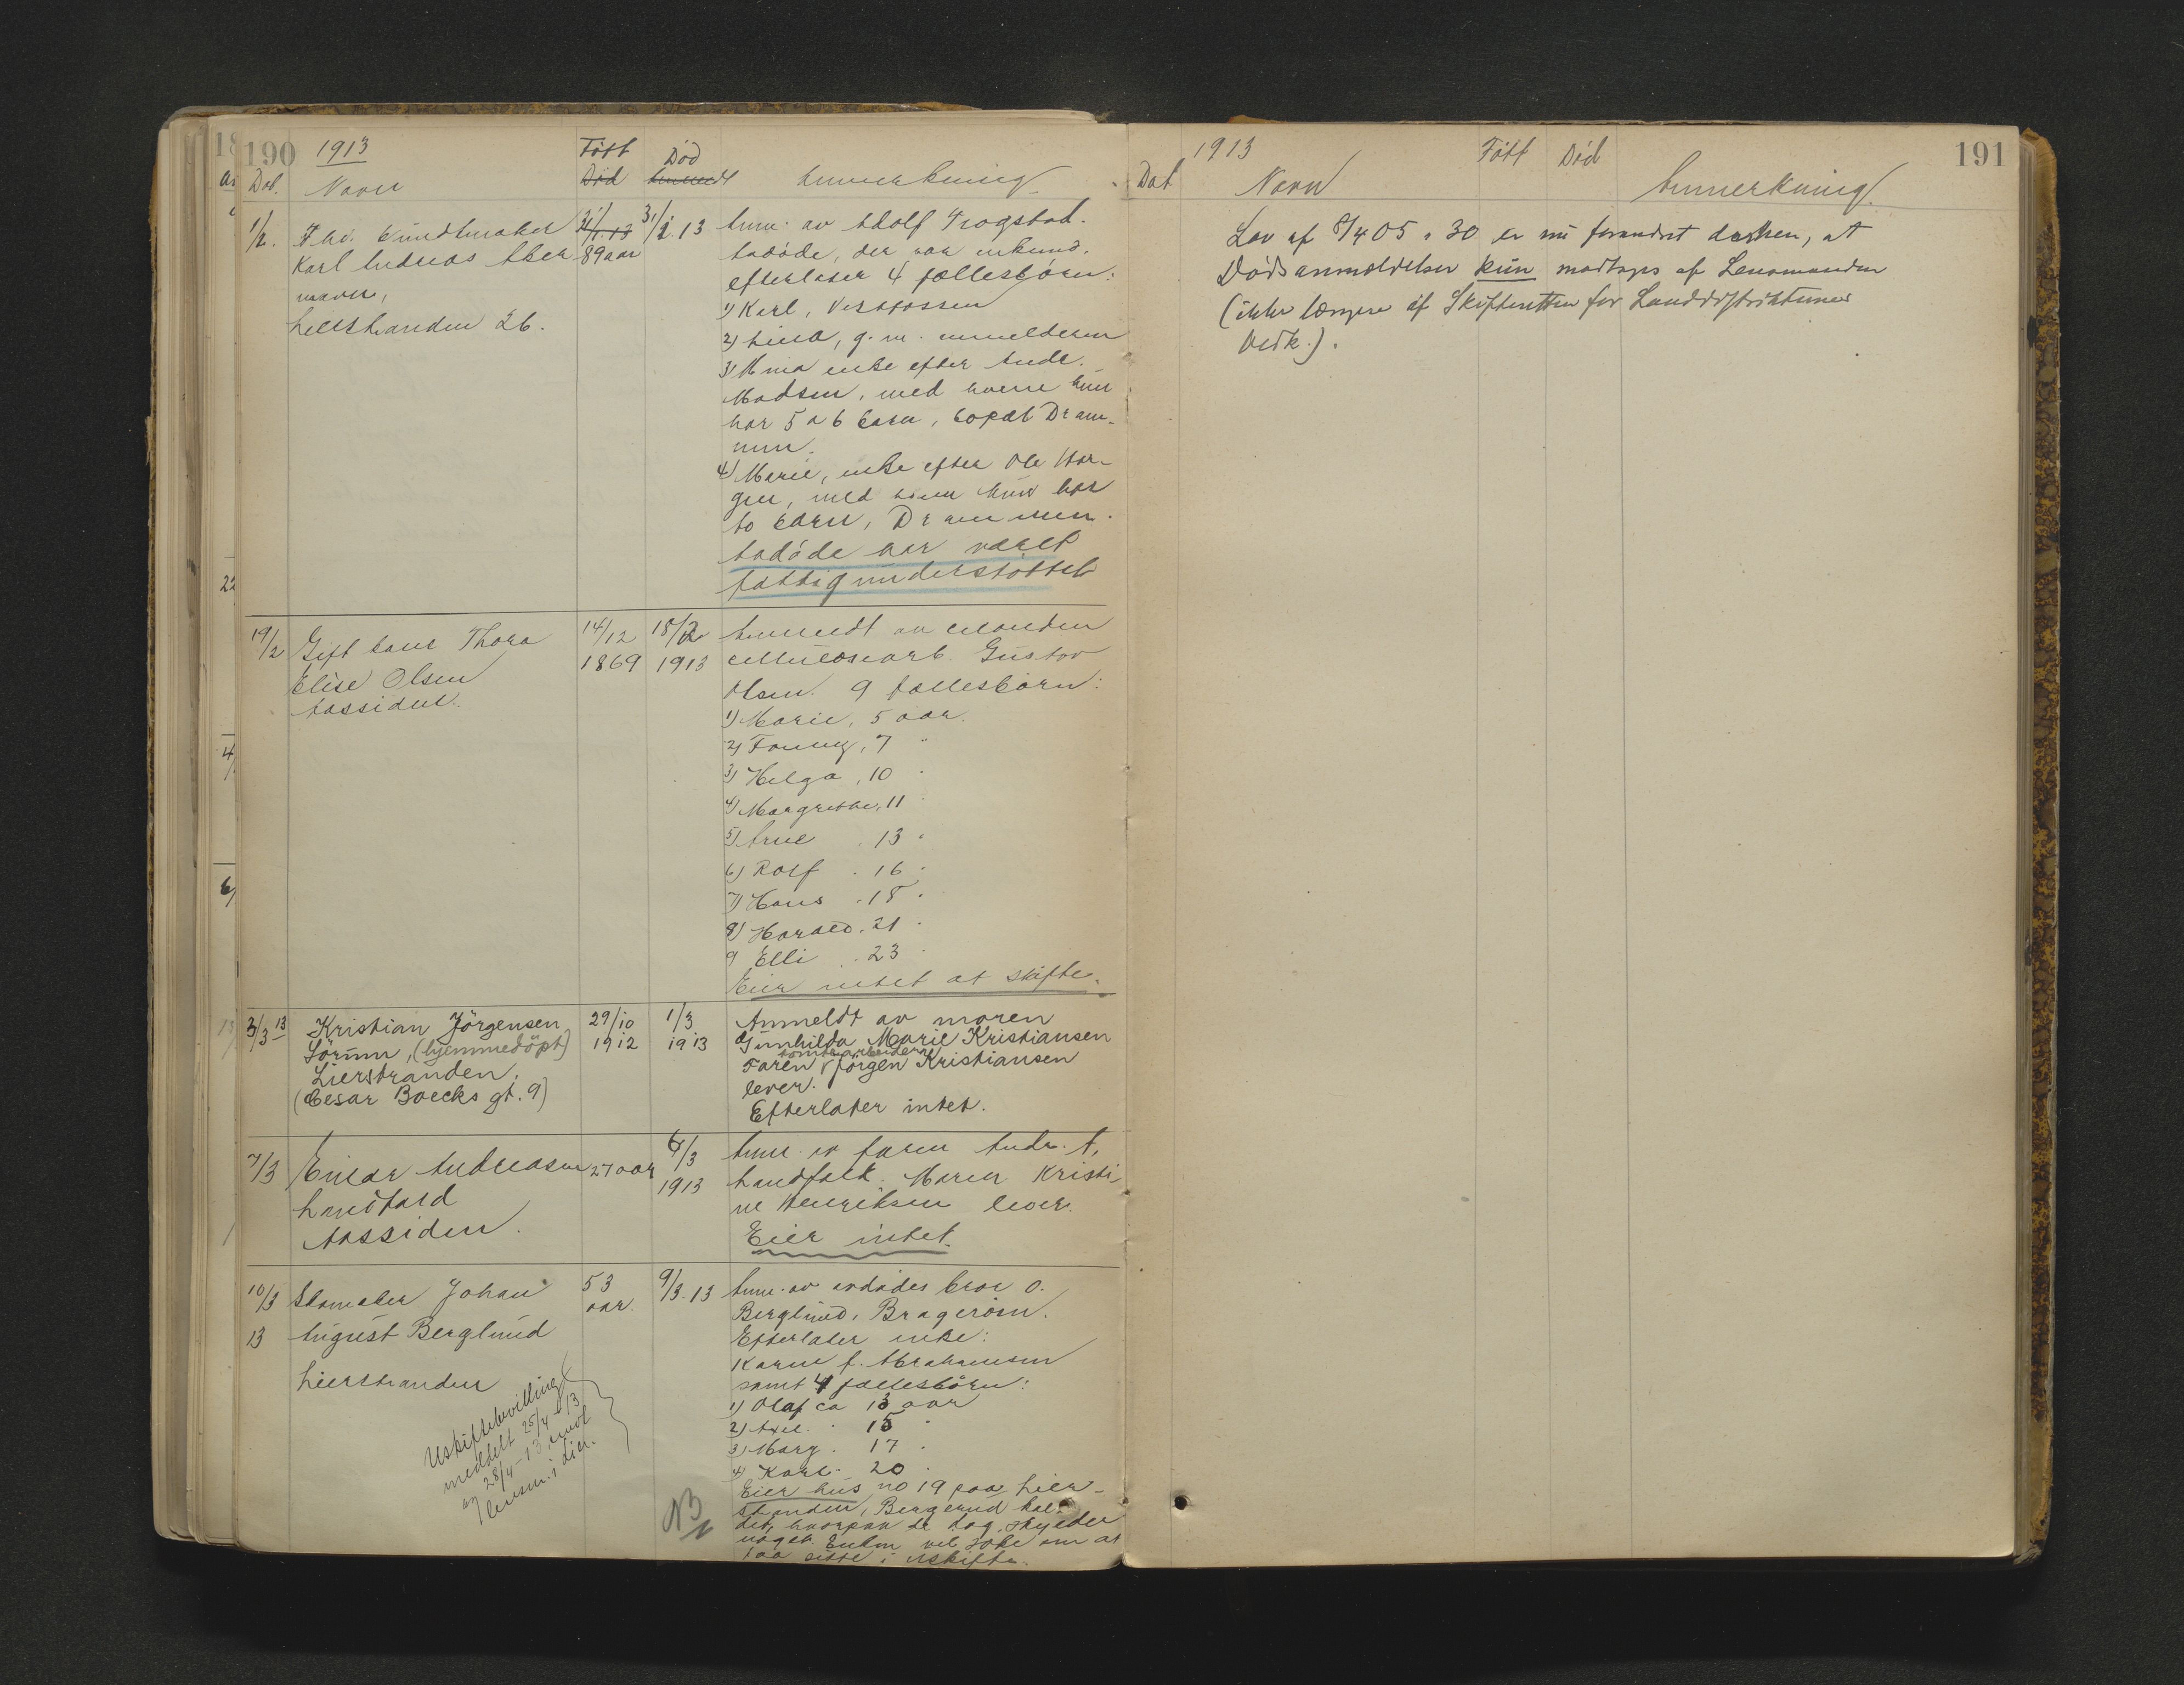 190
1913
Född
Död
Dat.
Navn
Död
Anmeldt
Anmerkning
1/2.
Fhv. bundtmaker
Karl Andreas Aker
mann,
Lierstranden 26.
31/1.13
89 aar
31/1.13
Anm. av Adolf Frogstad.
Avdöde, der var enkemd.
efterlater 4 fællesbörn:
1) Karl, Vestfossen
2) Lina, g. m. anmelderen
3) Mina enke efter Andr.
Madsen, med hvem hun
har 5 a 6 barn, bopæl Dram-
men.
4) Marie, enke efter Ole Hor-
gen, med hvem hun har
to barn, Drammen.
Avdöde har været
fattigunderstöttet
19/2
Gift kone Thora
Elise Olsen
Aassiden.
14/12
1869
18/2
1913
Anmeldt av manden
cellulosearb. Gustav
Olsen. 9 fællesbarn:
1) Marie, 5 aar.
2) Fanny, 7 "
3) Helga, 10 "
4) Margrethe, 11 "
5) Arne . 13 "
6) Rolf . 16 "
7) Hans . 18 "
8) Harald . 21 "
9 Elli . 23 "
Eier intet at skifte.
3/3 13
Kristian Jörgensen
Sörum, (hjemmedöpt)
Lierstranden.
(Cesar Boecks gt. 9)
29/10
1912
1/3
1913
Anmeldt av moren
Gunhilda Marie Kristiansen
tomtearbeider
Faren Jörgen Kristiansen
lever.
Efterlater intet.
7/3
Einar Andreasen
Landfald
Aassiden.
27 aar
6/3
1913
Anm. av faren Andr. A.
Landfald. Moren Kristi-
ne Henriksen lever.
Eier intet.
10/3
13
Skomaker Johan
August Berglund
Lierstranden
53
aar.
9/3.13
Anm. av avdödes bror O.
Berglund, Brageröen.
Efterlater enke:
Karen f. Abrahamsen
samt 4 fællesbörn:
1) Olaf ca 13 aar
2) Axel. " 15 "
3) Marg. 17 "
4) Karl. 20 "
Eier hus no 19 paa Lier-
stranden, Bergerud kal-
det, hvorpaa de dog skylder
noget. Enken vil söke om at
faa sitte i uskifte.
Uskiftebevilling
meddelt 25/4-13
og 28/4-13 medd
lensm. i Lier.
NB
191
1913
Dat
Navn
Född
Död
Anmerkning.
Lov af 8/4 05 § 30 er nu forandret derhen, at
Dödsanmeldelser kun modtages af Lensmanden
(ikke længere af Skifteretten for Landdistrikternes
Vedk.).